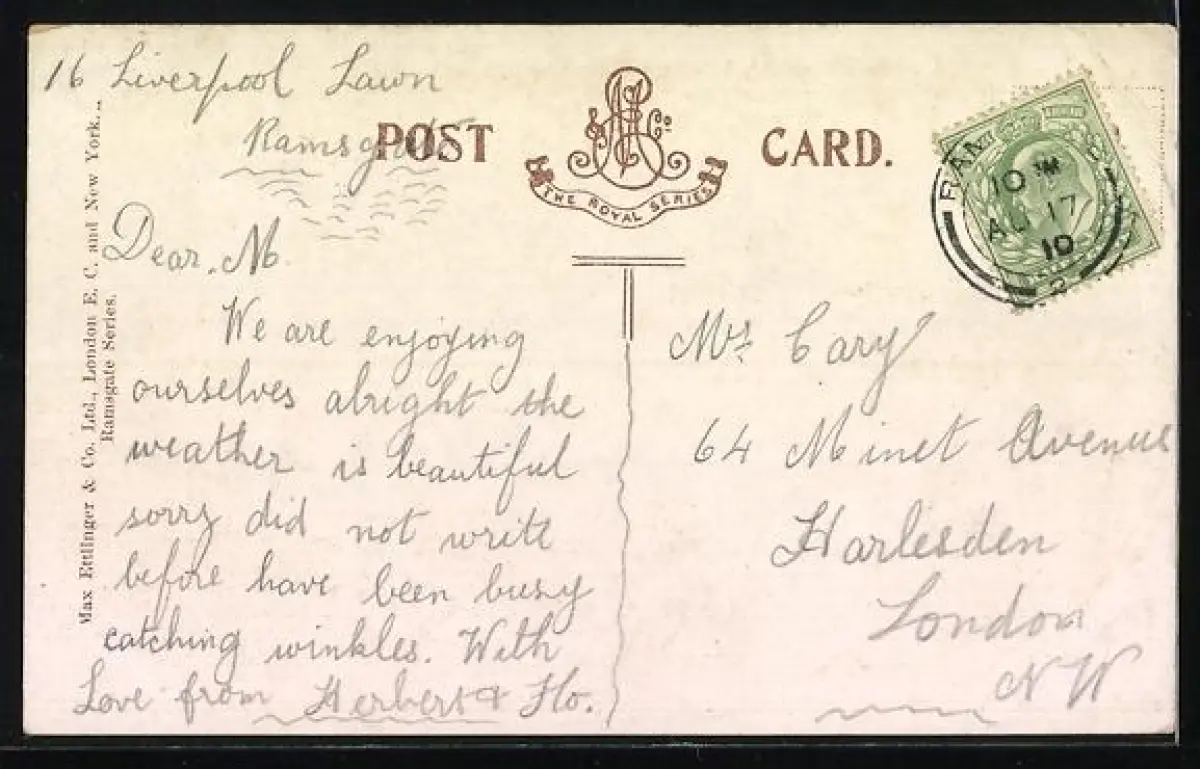 16 Liverpool Lawn
Ramsgate
POST CARD.
THE ROYAL SERIES
Dear. M
We are enjoying
ourselves alright the
weather is beautiful
sorry did not write
before have been busy
catching winkles. With
Love from Herbert & Flo.
Mrs Cary
64 Minet Avenue
Harlesden
London
NW
10
AU 17
10
2
Max Ettlinger & Co. Ltd., London E. C. and New York...
Ramsgate Series.